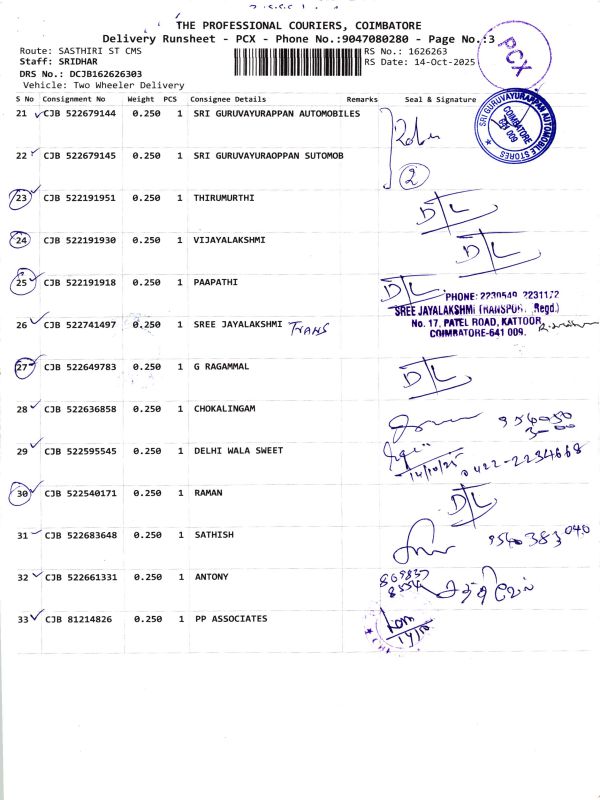 THE PROFESSIONAL COURIERS, COIMBATORE
Delivery Runsheet - PCX - Phone No.:9047080280 - Page No.:3
Route: SASTHIRI ST CMS RS No.: 1626263
Staff: SRIDHAR RS Date: 14-Oct-2025
DRS No.: DCJB162626303
Vehicle: Two Wheeler Delivery
PCX
S No Consignment No Weight PCS Consignee Details Remarks Seal & Signature
21 CJB 522679144 0.250 1 SRI GURUVAYURAPPAN AUTOMOBILES
SRI GURUVAYURAPPAN AUTOMOBILE STORES
COIMBATORE
641 009.
22 CJB 522679145 0.250 1 SRI GURUVAYURAOPPAN SUTOMOB
2
23 CJB 522191951 0.250 1 THIRUMURTHI D/L
24 CJB 522191930 0.250 1 VIJAYALAKSHMI D/L
25 CJB 522191918 0.250 1 PAAPATHI D/L
PHONE: 2230549, 2231172
SREE JAYALAKSHMI TRANSPORT (Regd.)
26 CJB 522741497 0.250 1 SREE JAYALAKSHMI TRANS
No. 17, PATEL ROAD, KATTOOR,
COIMBATORE-641 009.
27 CJB 522649783 0.250 1 G RAGAMMAL D/L
28 CJB 522636858 0.250 1 CHOKALINGAM
29 CJB 522595545 0.250 1 DELHI WALA SWEET
14/10/25 0422-2234668
30 CJB 522540171 0.250 1 RAMAN D/L
31 CJB 522683648 0.250 1 SATHISH
32 CJB 522661331 0.250 1 ANTONY சக்திவேல்
33 CJB 81214826 0.250 1 PP ASSOCIATES
14/10